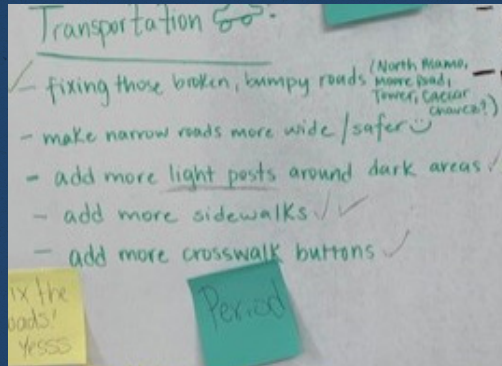 Transportation :
- fixing those broken, bumpy roads (North Alamo,
Moore Road,
Tower, Caesar
Chavez?)
- make narrow roads more wide/safer
- add more light posts around dark areas
- add more sidewalks
- add more crosswalk buttons
ix the
oads!
Yesss
Period